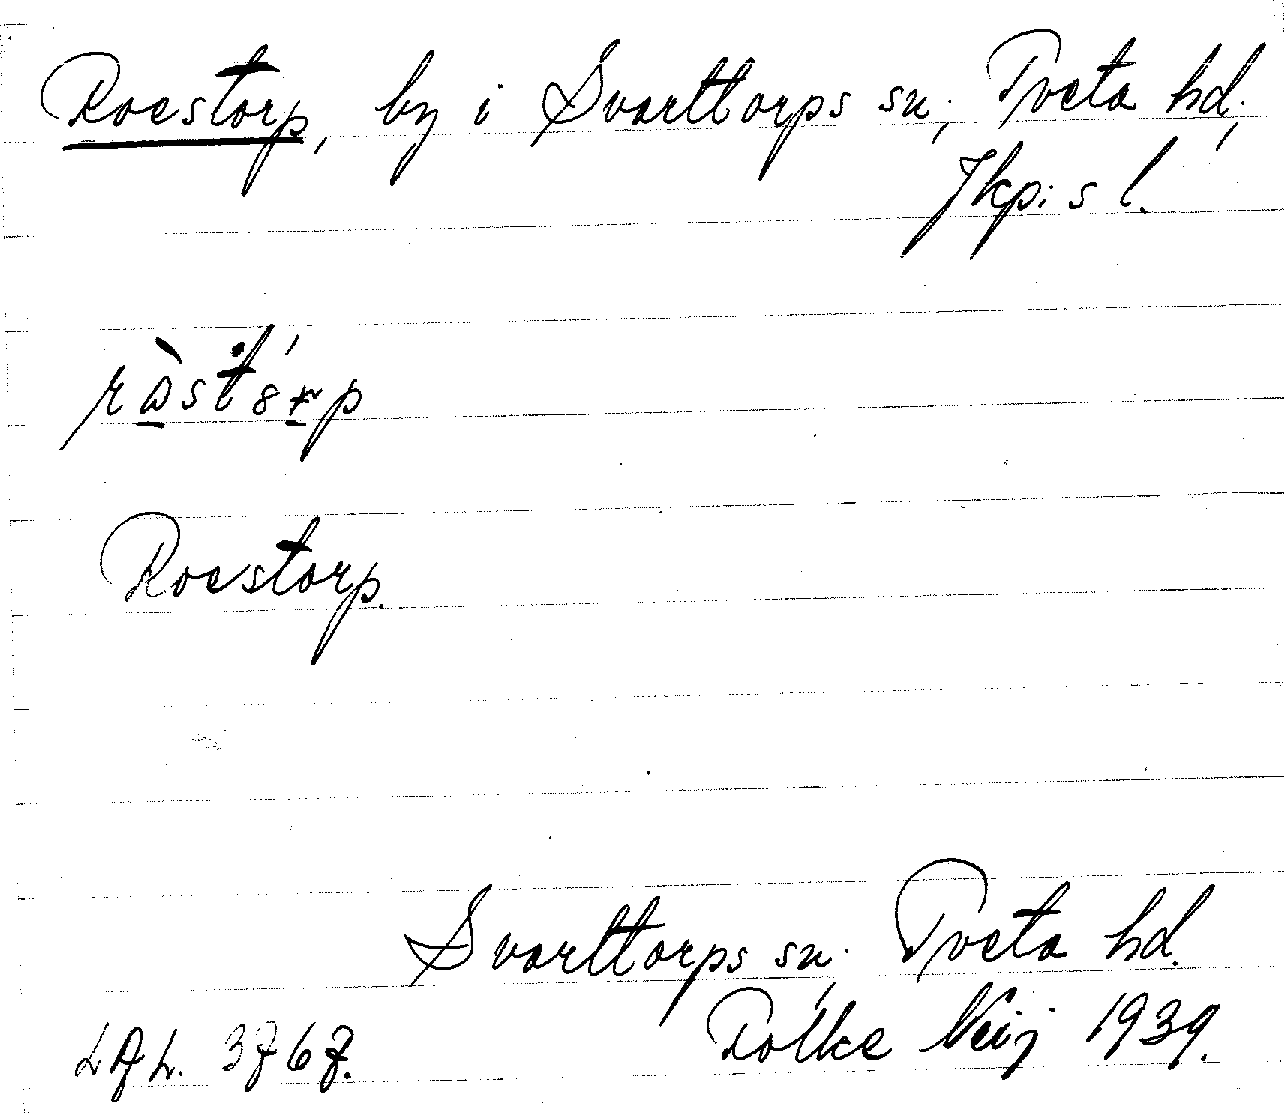 Roestorp, by i Svarttorps sn, Tveta hd,
Jkp:s l.
Roestorp.
Svarttorps sn, Tveta hd.
Folke Neij 1939.
3767.